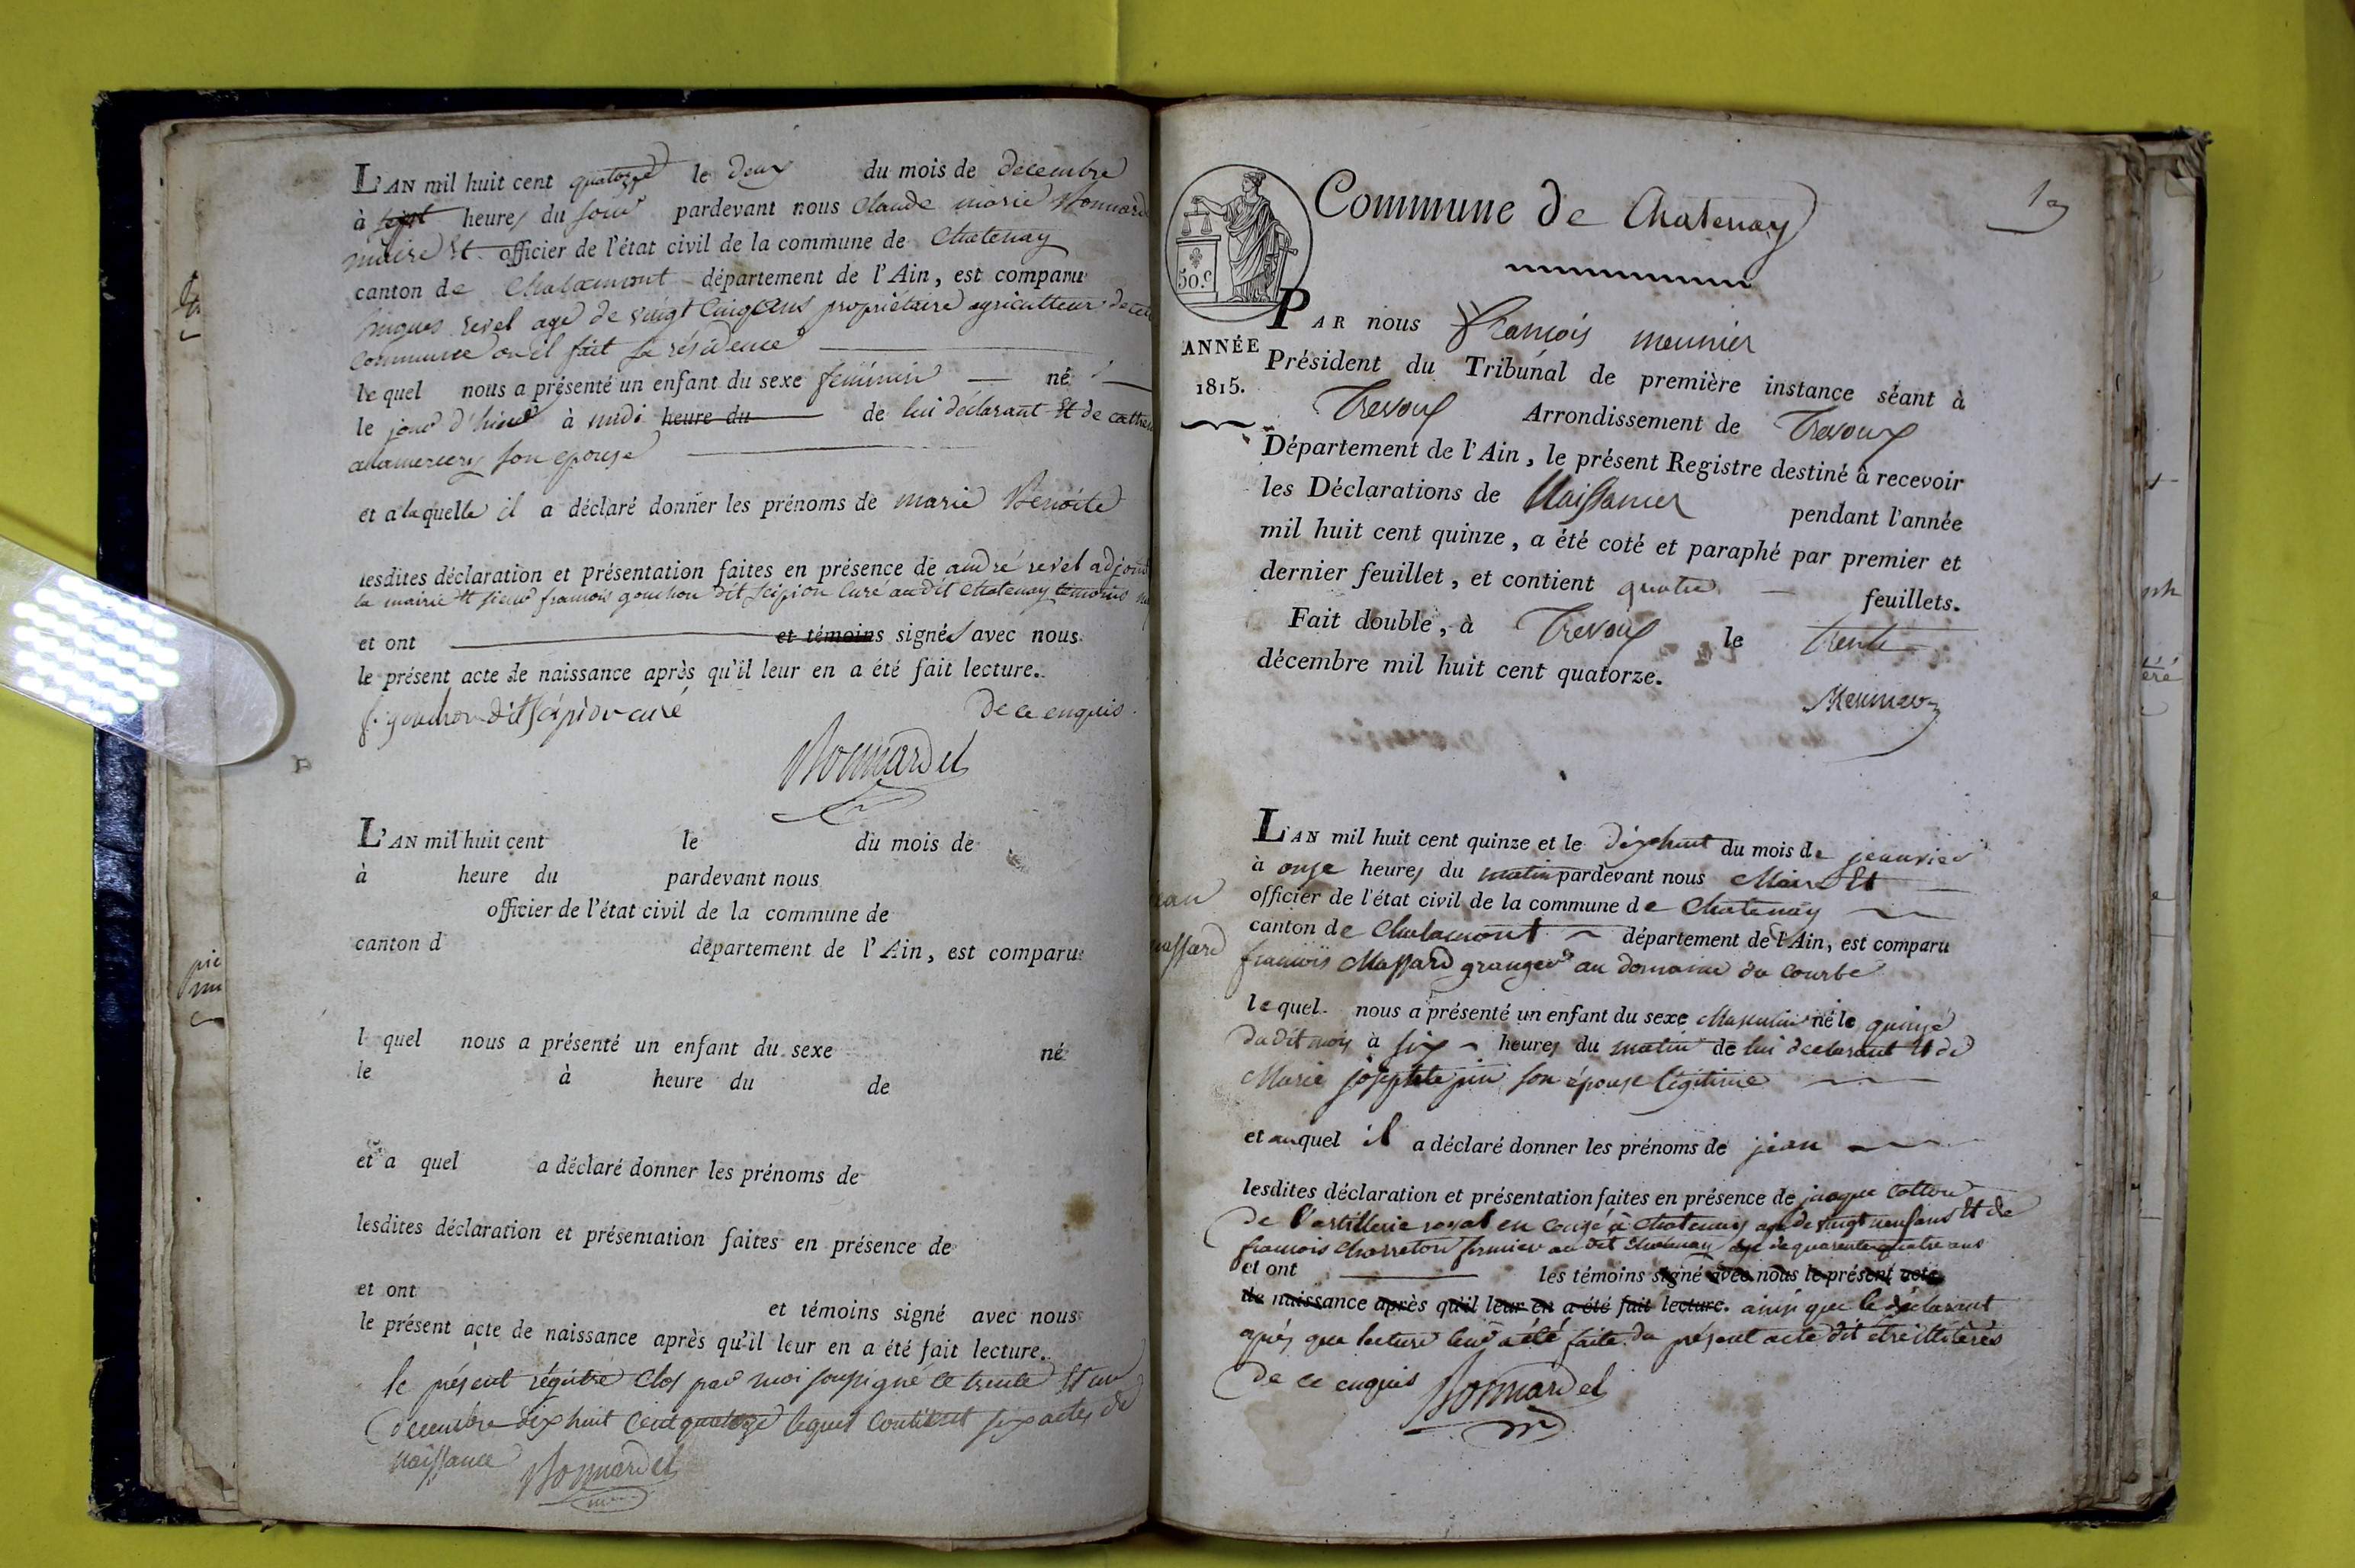 L'AN mil huit cent quatorze le deux du mois de décembre
à sept heures du soir pardevant nous Claude marie Bonnard
maire Et officier de l'état civil de la commune de Chatenay
canton de Chalamont département de l'Ain, est comparu
hugues revel agé de vingt Cinq ans propriétaire agriculteur de cette
commune où il fait sa résidence
lequel nous a présenté un enfant du sexe féminin né
le jour d'hier à midi heure du de lui déclarant Et de cathe
son epouse
et a laquelle il a déclaré donner les prénoms de marie Benoite
lesdites déclaration et présentation faites en présence de andré revel adjoint
la mairie et sieur francois gonchon dit scipion Curé au dit Chatenay témoins
et ont et témoins signés avec nous
le présent acte de naissance après qu'il leur en a été fait lecture.
f. gonchon dit scipion curé De ce enquis.
Bonnardel
L'AN mil huit cent le du mois de
à heure du pardevant nous
officier de l'état civil de la commune de
canton d département de l'Ain, est comparu
l quel nous a présenté un enfant du sexe né
le à heure du de
et a quel a déclaré donner les prénoms de
lesdites déclaration et présentation faites en présence de
et ont et témoins signé avec nous
le présent acte de naissance après qu'il leur en a été fait lecture.
le présent régistre Clos par moi soussigné le trente Et un
décembre dix huit Cent quatorze lequel Contient six actes de
naissance Bonnardel
Commune de Chatenay
1er
50.c
PAR nous François meunier
ANNÉE
1815.
Président du Tribunal de première instance séant à
Trevoux Arrondissement de Trevoux
Département de l'Ain, le présent Registre destiné à recevoir
les Déclarations de Naissances pendant l'année
mil huit cent quinze, a été coté et paraphé par premier et
dernier feuillet, et contient quatre feuillets.
Fait double, à Trevoux le trente
décembre mil huit cent quatorze.
Meunier
L'AN mil huit cent quinze et le dix huit du mois de jeanvier
à onze heures du matin pardevant nous Maire Et
officier de l'état civil de la commune de Chatenay
jean
canton de Chalamont département de l'Ain, est comparu
massard
francois Massard granger au domaine du Courbe
lequel nous a présenté un enfant du sexe Masculin né le quinze
du dit mois à six heures du matin de lui déclarant Et de
Marie josephte pin son épouse légitime
et auquel il a déclaré donner les prénoms de jean
lesdites déclaration et présentation faites en présence de jacque Cotton
de l'artillerie royal en Congé à Chatenay agé de vingt neuf ans Et de
francois Charreton fermier au dit Chatenay agé de quarente quatre ans
et ont les témoins signé avec nous le présent acte
de naissance après qu'il leur en a été fait lecture. ainsi que le déclarant
après que lecture leur a été faite du présent acte dit être illiterés
De ce enquis Bonnardel